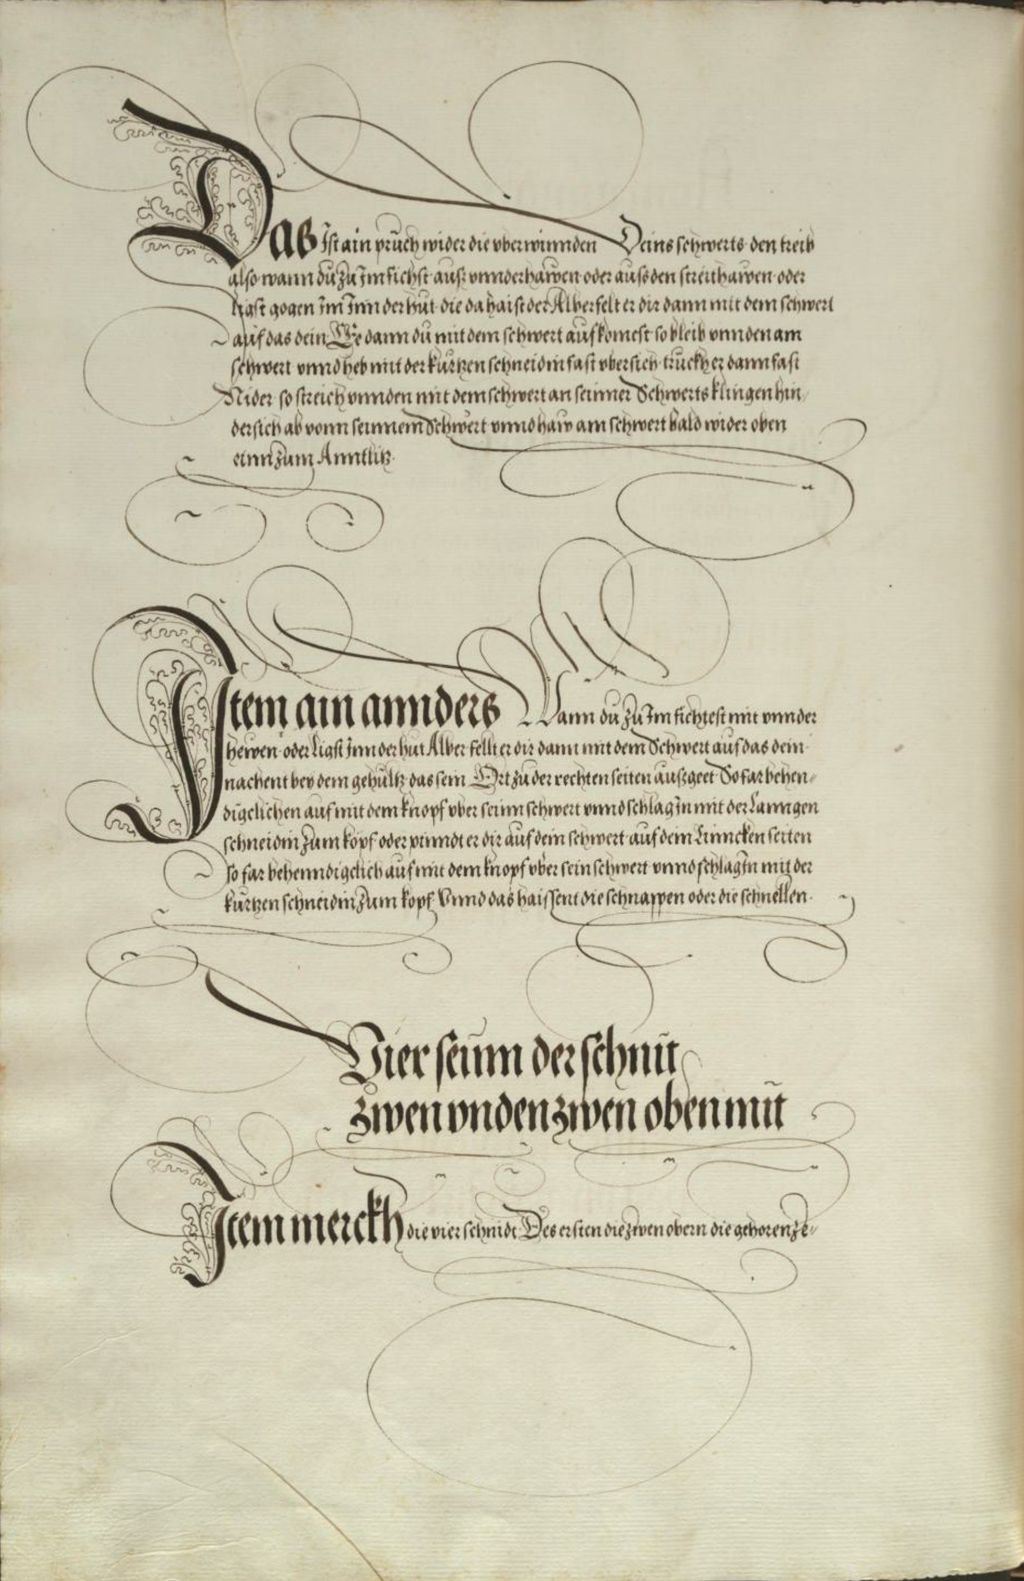 Das Ist ain pruch wider die vberwinnden Deins schwerts den treib
also wann du zu Im fichst auß vnnderhawen oder auss den streithawen oder
ligst gogen Im Inn der hut die da haist der Alber felt er dir dann mit dem schwert
auf das dein Ee dann du mit dem schwert auf komest so bleib vnnden am
schwert vnnd heb mit der kurtzen schneidin fast vbersich truckh er dann fast
Nider so streich vnnden mit dem schwert an seinner Schwerts klingen hin,
dersich ab vonn seinnem Schwert vnnd haw am schwert bald wider oben
einn zum Anntlitz.
Item ain annders Wann du zu Im fichtest mit vnnder
hewen oder ligst Inn der hut Alber fellt er dir dann mit dem Schwert auf das dein
nachent bey dem gehültz das sein Ort zu der rechten seiten außgeet So far behen,,
digclichen auf mit dem knopf vber seinn schwert vnnd schlag In mit der Lanngen
schneidin zum kopf oder pinndt er dir auf dein schwert auf dein Linncken seiten
so far behenndigclich auf mit dem knopf vber sein schwert vnnd schlag In mit der
kurtzen schneidin zum kopf Vnnd das haissent die schnappen oder die schnellen.
Vier seinn der schnit
zwen vnden zwen oben mit
Item merckh die vier schnidt Des ersten die zwen obern die gehoren ze,,